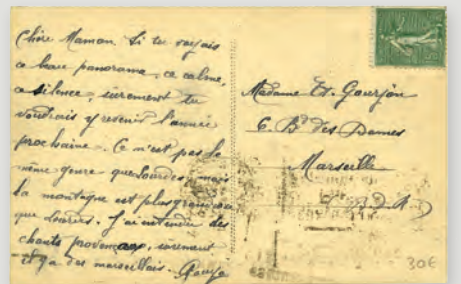 Chère Maman. Si tu voyais
ce beau panorama, ce calme,
ce silence, sûrement tu
voudrais y revenir l'année
prochaine. Ce n'est pas le
même genre que Lourdes, mais
la montagne est plus grandiose
que Lourdes. J'ai entendu des
chants provençaux, sûrement
il y a des marseillais.
Madame Et. Gourjon
6. Bd des Dames
Marseille
30€